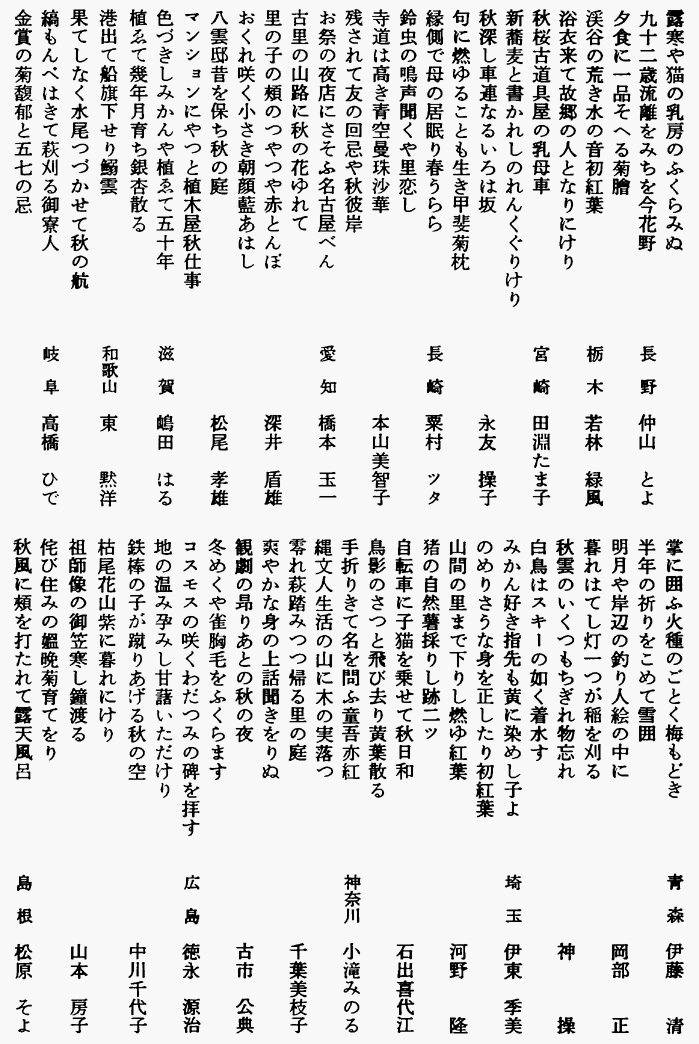 露寒や猫の乳房のふくらみぬ
九十二歳流離をみちを今花野 長野 仲山 とよ
夕食に一品そへる菊膾
渓谷の荒き水の音初紅葉 栃木 若林 緑風
浴衣来て故郷の人となりにけり
秋桜古道具屋の乳母車 宮崎 田淵たま子
新蕎麦と書かれしのれんくぐりけり
秋深し車連なるいろは坂 永友 操子
句に燃ゆることも生き甲斐菊枕
縁側で母の居眠り春うらら 長崎 粟村 ツタ
鈴虫の鳴声聞くや里恋し
寺道は高き青空曼珠沙華 本山美智子
残されて友の回忌や秋彼岸
お祭の夜店にさそふ名古屋べん 愛知 橋本 玉一
古里の山路に秋の花ゆれて
里の子の頬のつやつや赤とんぼ 深井 盾雄
おくれ咲く小さき朝顔藍あはし
八雲邸昔を保ち秋の庭 松尾 孝雄
マンションにやつと植木屋秋仕事
色づきしみかんや植ゑて五十年 滋賀 嶋田 はる
植ゑて幾年月育ち銀杏散る
港出て船旗下せり鰯雲 和歌山 東 黙洋
果てしなく水尾つづかせて秋の航
縞もんぺはきて萩刈る御寮人 岐阜 高橋 ひで
金賞の菊馥郁と五七の忌
掌に囲ふ火種のごとく梅もどき 青森 伊藤 清
半年の祈りをこめて雪囲
明月や岸辺の釣り人絵の中に 岡部 正
暮れはてし灯一つが稲を刈る
秋雲のいくつもちぎれ物忘れ 神 操
白鳥はスキーの如く着水す
みかん好き指先も黄に染めし子よ 埼玉 伊東 季美
のめりさうな身を正したり初紅葉
山間の里まで下りし燃ゆ紅葉 河野 隆
猪の自然薯採りし跡二ッ
自転車に子猫を乗せて秋日和 石出喜代江
鳥影のさつと飛び去り黄葉散る
手折りきて名を問ふ童吾亦紅 神奈川 小滝みのる
縄文人生活の山に木の実落つ
零れ萩踏みつつ帰る里の庭 千葉美枝子
爽やかな身の上話聞きをりぬ
観劇の昂りあとの秋の夜 古市 公典
冬めくや雀胸毛をふくらます
コスモスの咲くわだつみの碑を拝す 広島 徳永 源治
地の温み孕みし甘藷いただけり
鉄棒の子が蹴りあげる秋の空 中川千代子
枯尾花山紫に暮れにけり
祖師像の御笠寒し鐘渡る 山本 房子
侘び住みの媼晩菊育てをり
秋風に頬を打たれて露天風呂 島根 松原 そよ